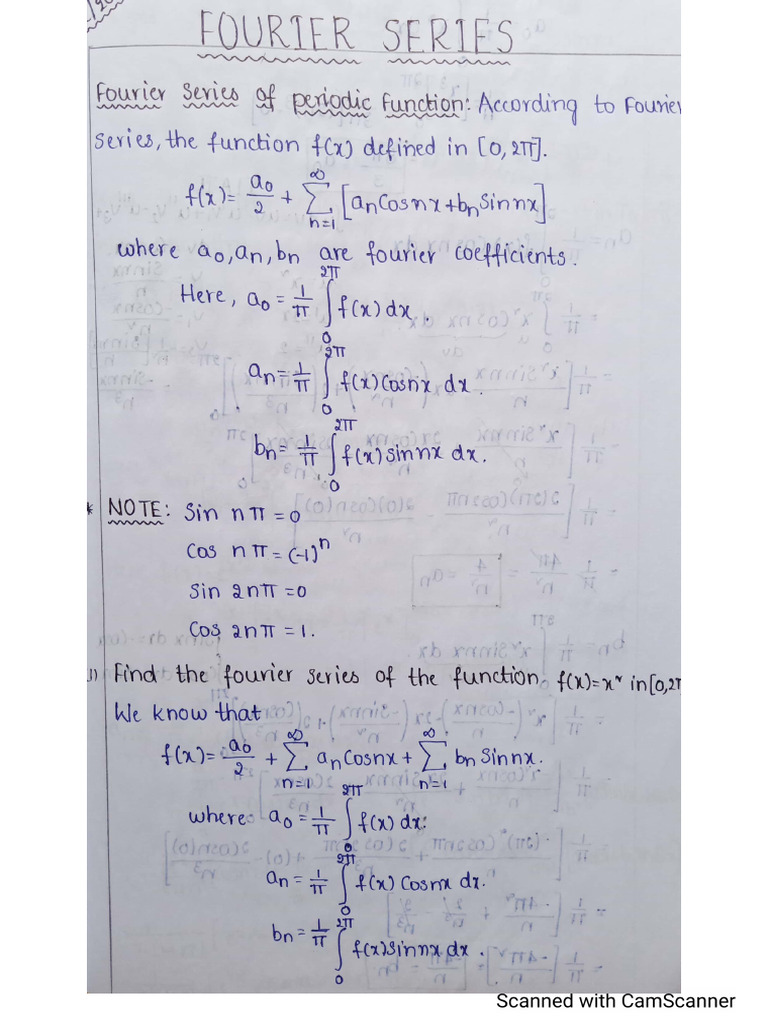 FOURIER SERIES
Fourier Series of Periodic Function: According to Fourier
Series, the function f(x) defined in [0, 2π].
f(x) = a₀/2 + ∑_{n=1}^{∞} [aₙ cos nx + bₙ sin nx]
where a₀, aₙ, bₙ are fourier coefficients.
Here, a₀ = 1/π ∫_0^{2π} f(x) dx.
aₙ = 1/π ∫_0^{2π} f(x) cos nx dx.
bₙ = 1/π ∫_0^{2π} f(x) sin nx dx.
* NOTE: Sin nπ = 0
Cos nπ = (-1)ⁿ
Sin 2nπ = 0
Cos 2nπ = 1.
1) Find the fourier series of the function f(x) = x² in [0, 2π
We know that
f(x) = a₀/2 + ∑_{n=1}^{∞} aₙ Cos nx + ∑_{n=1}^{∞} bₙ Sin nx.
where a₀ = 1/π ∫_0^{2π} f(x) dx.
aₙ = 1/π ∫_0^{2π} f(x) Cos nx dx.
bₙ = 1/π ∫_0^{2π} f(x) sin nx dx.
Scanned with CamScanner